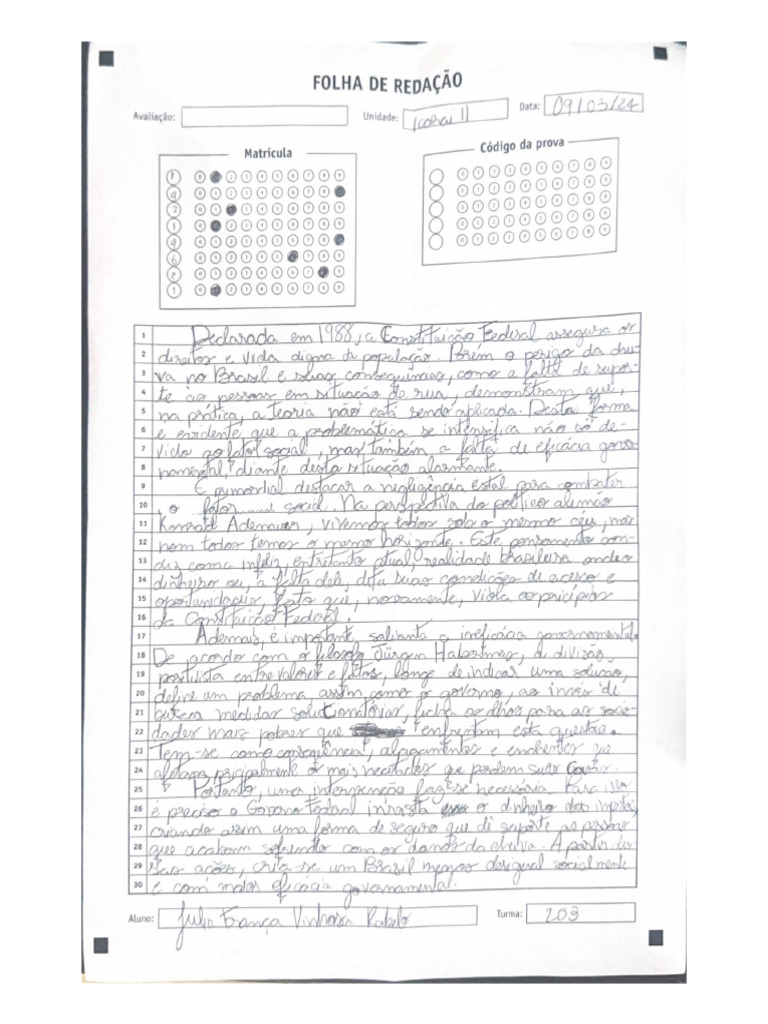 FOLHA DE REDAÇÃO
Avaliação:
Unidade: Icaraí 1
Data: 09/03/24
Matrícula
Código da prova
1 Declarada em 1988, a Constituição Federal assegura os
2 direitos e vida digna da população. Porém o perigo da chu-
3 va no Brasil e suas consequências, como a falta de supor-
4 te às pessoas em situação de rua, demonstram que,
5 na prática, a teoria não está sendo aplicada. Desta forma
6 é evidente que a problemática se intensifica não só de-
7 vido ao fator social, mas também a falta de eficácia gover-
8 namental, diante desta situação alarmante.
9 É primordial destacar a negligência estal para combater
10 o fator social. Na perspectiva do político alemão
11 Konrad Adenauer, vivemos todos sob o mesmo céu, mas
12 nem todos temos o mesmo horizonte. Este pensamento con-
13 diz com a infeliz, entretanto atual, realidade brasileira onde o
14 dinheiro ou, a falta dele, dita suas condições de acesso e
15 oportunidades, fato que, novamente, viola os pricípios
16 da Constituição Federal.
17 Ademais, é importante, salienta a ineficácia governamental.
18 De acordo com o filosofo Jürgen Habermas, a divisão
19 positivista entre valores e fatos, longe de indicar uma solução,
20 define um problema assim como o governo, ao invés de
21 buscar medidas solucionatórias, fecha os olhos para as socie-
22 dades mais pobres que enfrentam esta questão.
23 Tem-se como consequência, alagamentos e enchentes que
24 afetam principalmente os mais necessitados que perdem suas
25 Portanto, uma intervenção faz-se necessária. Para isso
26 é preciso o Governo Federal invista o dinheiro dos impostos,
27 criando assim uma forma de seguro que dê suporte as pessoas
28 que acabam sofrendo com os danos da chuva. A partir des-
29 sas ações, cria-se um Brasil menos desigual socialmente
30 e com maior eficácia governamental.
Aluno: Julia França Vinhosa Rabelo
Turma: 203